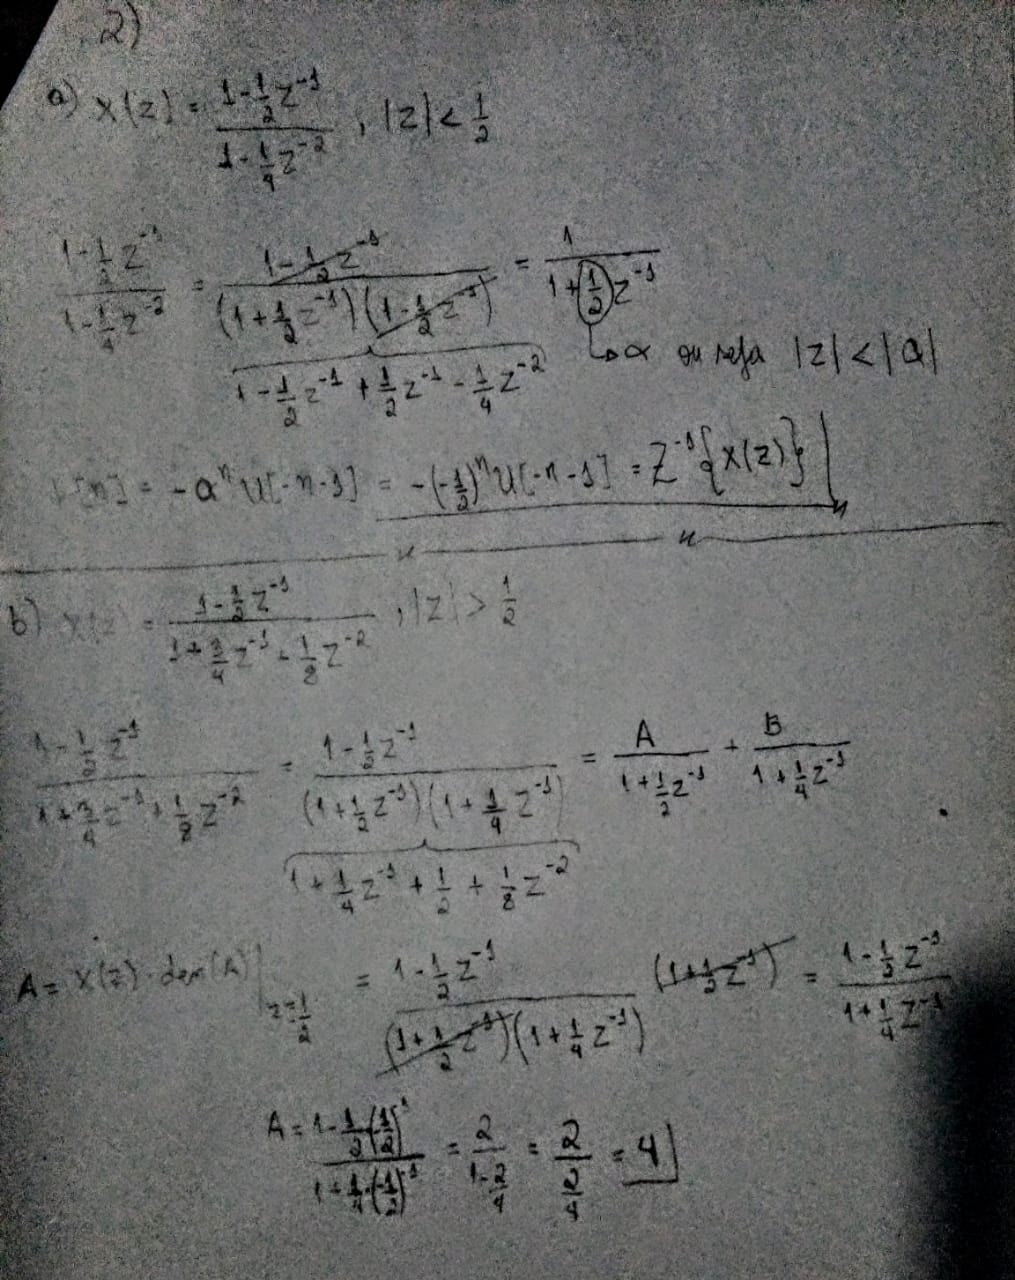 2)
a) X(z) = (1 - 1/2 z⁻¹)/(1 - 1/4 z⁻²) , |z| < 1/2
(1 - 1/2 z⁻¹)/(1 - 1/4 z⁻²) = (1 - 1/2 z⁻¹)/((1 + 1/2 z⁻¹)(1 - 1/2 z⁻¹)) = 1/(1 + 1/2 z⁻¹)
1 - 1/2 z⁻¹ + 1/2 z⁻¹ - 1/4 z⁻² ↳ α ou seja |z| < |a|
[n] = -aⁿ u[-n-1] = -(-1/2)ⁿ u[-n-1] = Z⁻¹{X(z)}
b) X(z) = (1 - 1/2 z⁻¹)/(1 + 3/4 z⁻¹ + 1/8 z⁻²) , |z| > 1/2
(1 - 1/2 z⁻¹)/(1 + 3/4 z⁻¹ + 1/8 z⁻²) = (1 - 1/2 z⁻¹)/((1 + 1/2 z⁻¹)(1 + 1/4 z⁻¹)) = A/(1 + 1/2 z⁻¹) + B/(1 + 1/4 z⁻¹)
1 + 1/4 z⁻¹ + 1/2 + 1/8 z⁻²
A = X(z) · den(A)| z=-1/2 = (1 - 1/2 z⁻¹)/((1 + 1/2 z⁻¹)(1 + 1/4 z⁻¹)) (1 + 1/2 z⁻¹) = (1 - 1/2 z⁻¹)/(1 + 1/4 z⁻¹)
A = (1 - 1/2 (-1/2)⁻¹)/(1 + 1/4·(-1/2)⁻¹) = 2/(1 - 2/4) = 2/(2/4) = 4